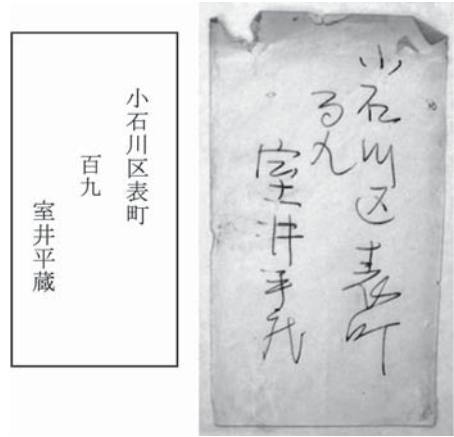 小石川区表町
百九
室井平蔵
小石川区表町
百九
室井平蔵